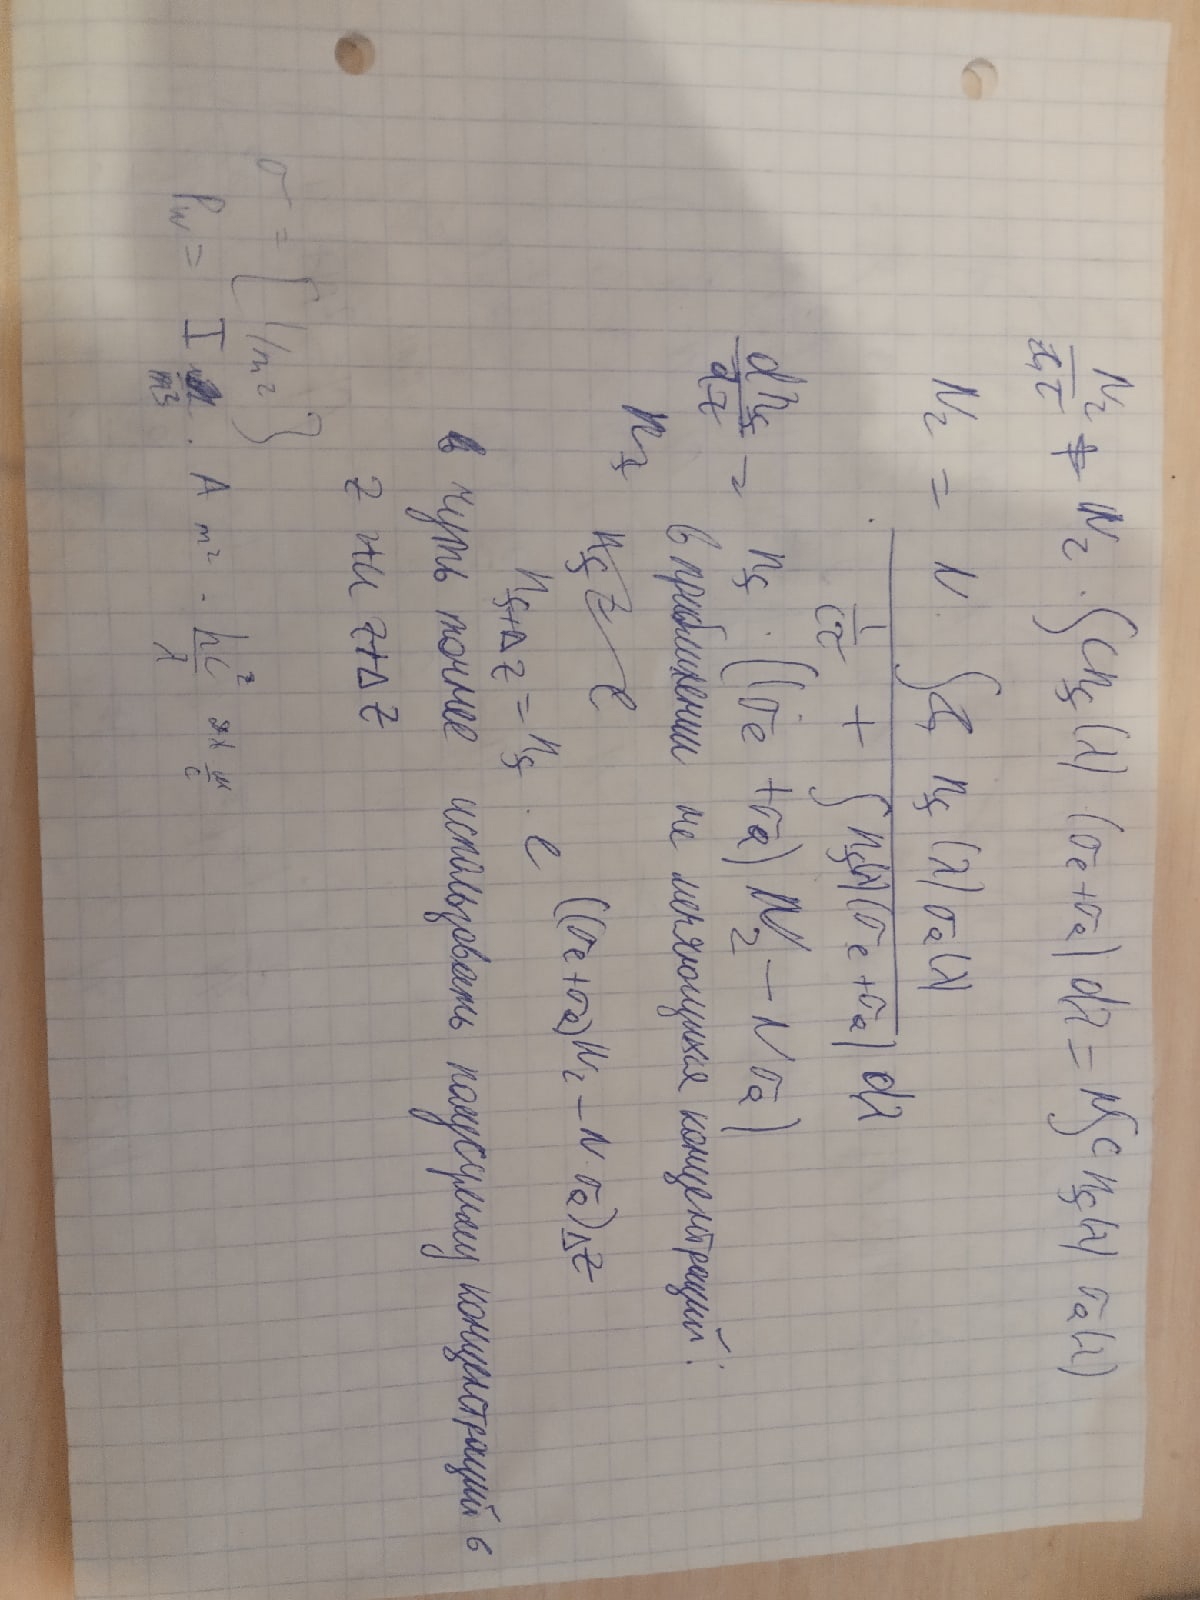 N₂/τ + N₂ · ∫ c n_s(λ) (σe + σa) dλ = N ∫ c n_s(λ) σa(λ)
N₂ = N · ∫ n_s(λ) σa(λ)
1/cτ + ∫ n_s(λ)(σe + σa) dλ
dn_s/dz = n_s · ((σe + σa) N₂ − N σa)
в приближении не меняющихся концентраций:
n_s+Δz = n_s · e ((σe+σa)N₂ − N·σa)Δz
в чуть точнее использовать полусумму концентраций в
z и z+Δz
σ = [1/m²]
P_w = I · A m² · hc²/λ